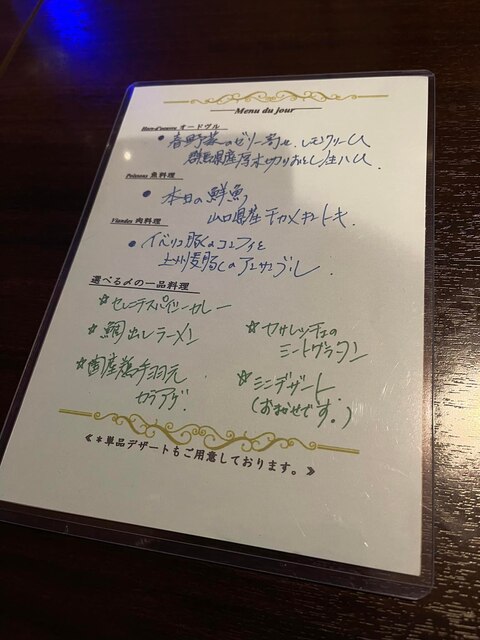 Menu du jour
Hors-d'oeuvre オードヴル
● 春野菜のゼリー寄せ、レモンクリーム
群馬県産厚木切りおとし生ハム
Poissons 魚料理
● 本日の鮮魚
山口県産チカメキントキ.
Viandes 肉料理
● イベリコ豚のコンフィと
上州麦豚のアンサンブル
選べる〆の一品料理
☆セレーナスパイシーカレー
☆鯛出しラーメン
☆国産鶏手羽元
カラアゲ.
☆カサレッチェの
ミートグラタン
☆ミニデザート
(おまかせです。)
≪*単品デザートもご用意しております。≫